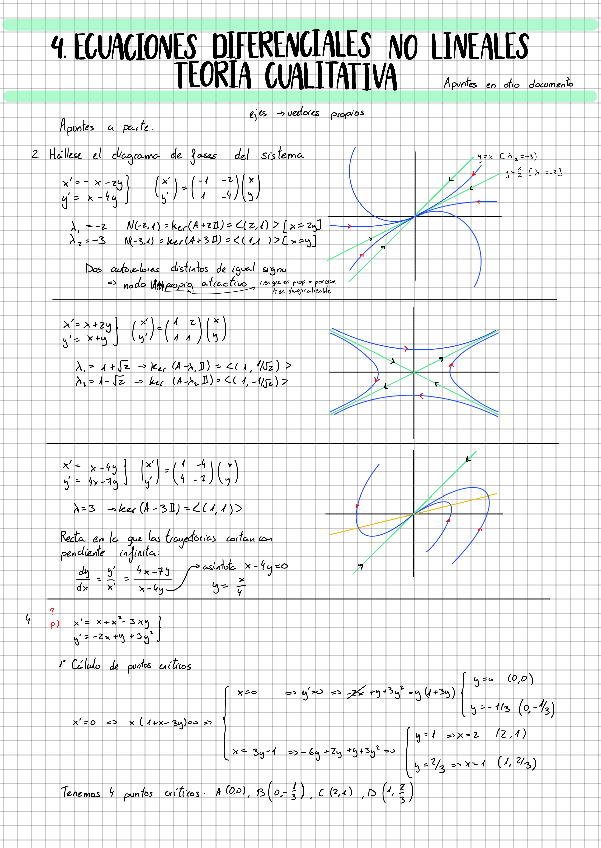 4. ECUACIONES DIFERENCIALES NO LINEALES
TEORIA CUALITATIVA
Apuntes en otro documento
ejes → vectores propios
Apuntes a parte.
2 Hállese el diagrama de fases del sistema
x' = -x-2y
y' = x-4y } (x' y') = (-1 -2 1 -4)(x y)
y=x [λ₂=-3]
y=x/2 [λ=-2]
λ₁ = -2 N(-2,1) = ker(A+2II) = <(2,1)> [x=2y]
λ₂ = -3 N(-3,1) = ker(A+3II) = <(1,1)> [x=y]
Dos autovalores distintos de igual signo
⇒ nodo impropio atractivo
x' = x+2y
y' = x+y } (x' y') = (1 2 1 1)(x y)
λ₁ = 1+√2 → ker (A-λ₁II) = <(1, 1/√2)>
λ₂ = 1-√2 → ker (A-λ₂II) = <(1, -1/√2)>
x' = x-4y
y' = 4x-7y } (x' y') = (1 -4 4 -7)(x y)
λ=3 → ker (A-3II) = <(1,1)>
Recta en la que las trayectorias cortan con
pendiente infinita:
dy/dx = y'/x' = 4x-7y/x-4y → asíntota x-4y=0
y = x/4
4 ?
p) x' = x+x²-3xy
y' = -2x+y+3y² }
1º Cálculo de puntos críticos
x'=0 ⇔ x(1+x-3y)=0 ⇔
x=0 ⇒ y'=0 ⇔ -2x+y+3y² = y(1+3y)
y=0 (0,0)
y=-1/3 (0,-1/3)
x=3y-1 ⇒ -6y+2+y+3y²=0
y=1 ⇒ x=2 (2,1)
y=2/3 ⇒ x=1 (1,2/3)
Tenemos 4 puntos críticos. A(0,0), B(0,-1/3), C(2,1), D(1,2/3)